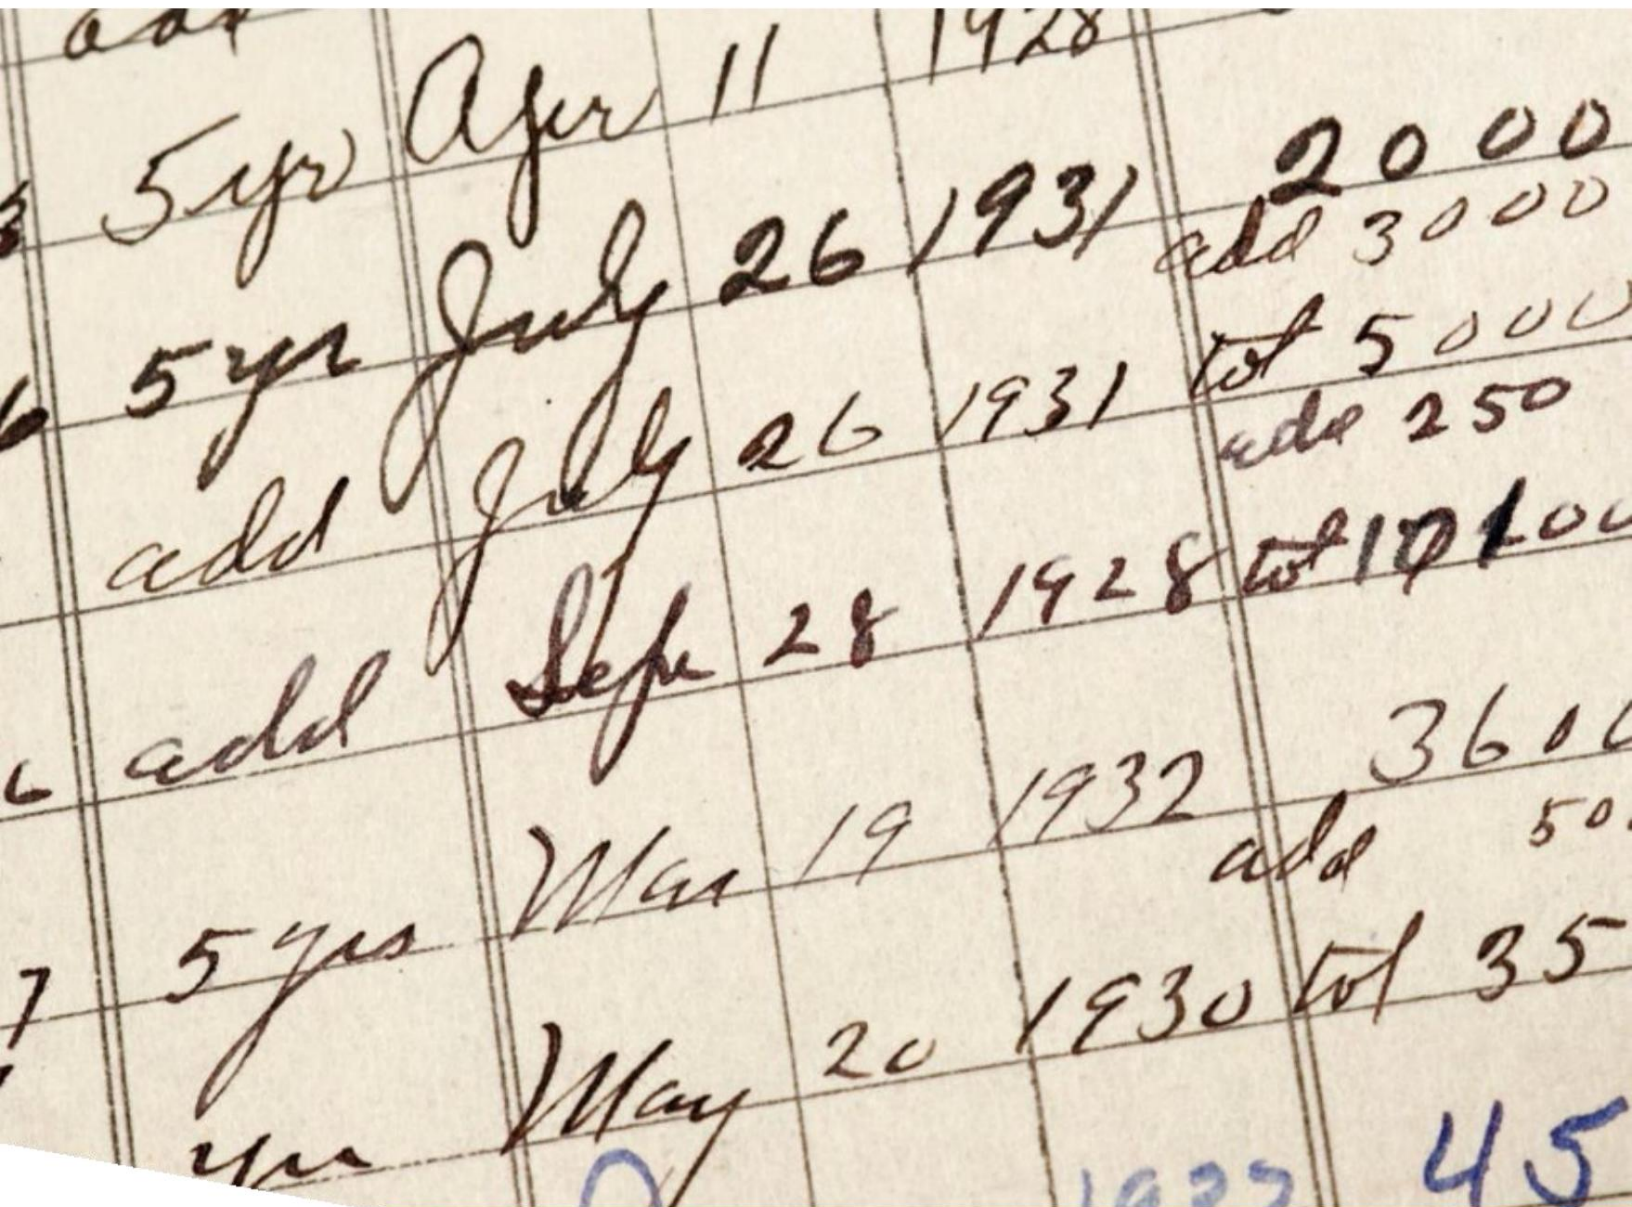 5 yr Apr 11 1928
5 yr July 26 1931 2000
add 3000
add July 26 1931 tot 5000
add 250
6 add Sep 28 1928 tot
7 5 yrs Mar 19 1932
add
yr May 20 1930 tot 35
45